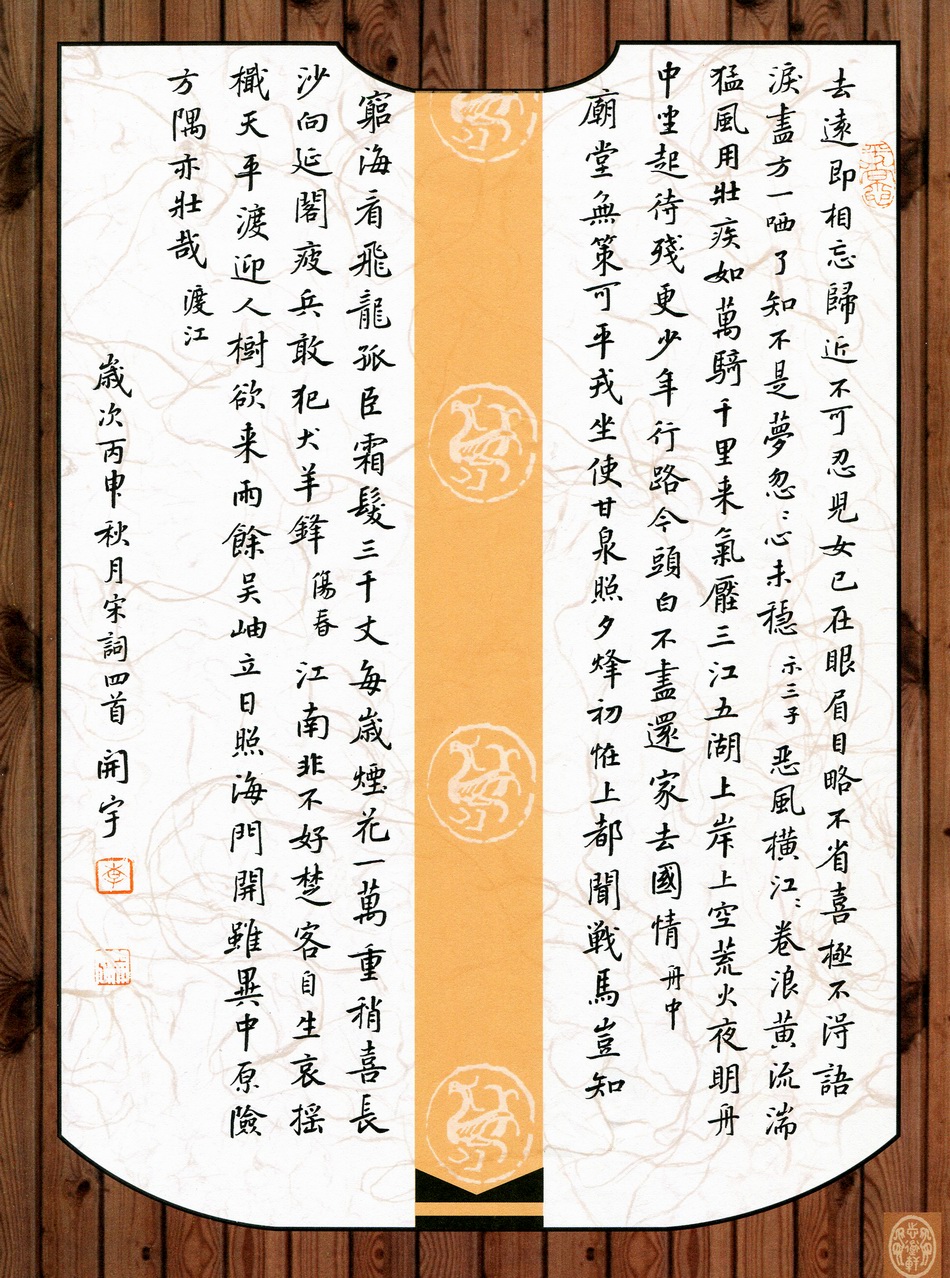 去遠即相忘歸近不可忍兒女已在眼眉目略不省喜極不淂語
淚盡方一哂了知不是夢忽〻心未穩 示三子 惡風橫江〻卷浪黃流湍
猛風用壯疾如萬騎千里来氣壓三江五湖上岸上空荒火夜明舟
中坐起待殘更少年行路今頭白不盡還家去國情 舟中
廟堂無策可平戎坐使甘泉照夕烽初恠上都聞戰馬豈知
窮海看飛龍孤臣霜髮三千丈每歲煙花一萬重稍喜長
沙向延閣疲兵敢犯犬羊鋒 傷春 江南非不好楚客自生哀搖
檝天平渡迎人樹欲来雨餘吴岫立日照海門開雖異中原險
方隅亦壯哉 渡江
歲次丙申秋月宋詞四首 開宇
李